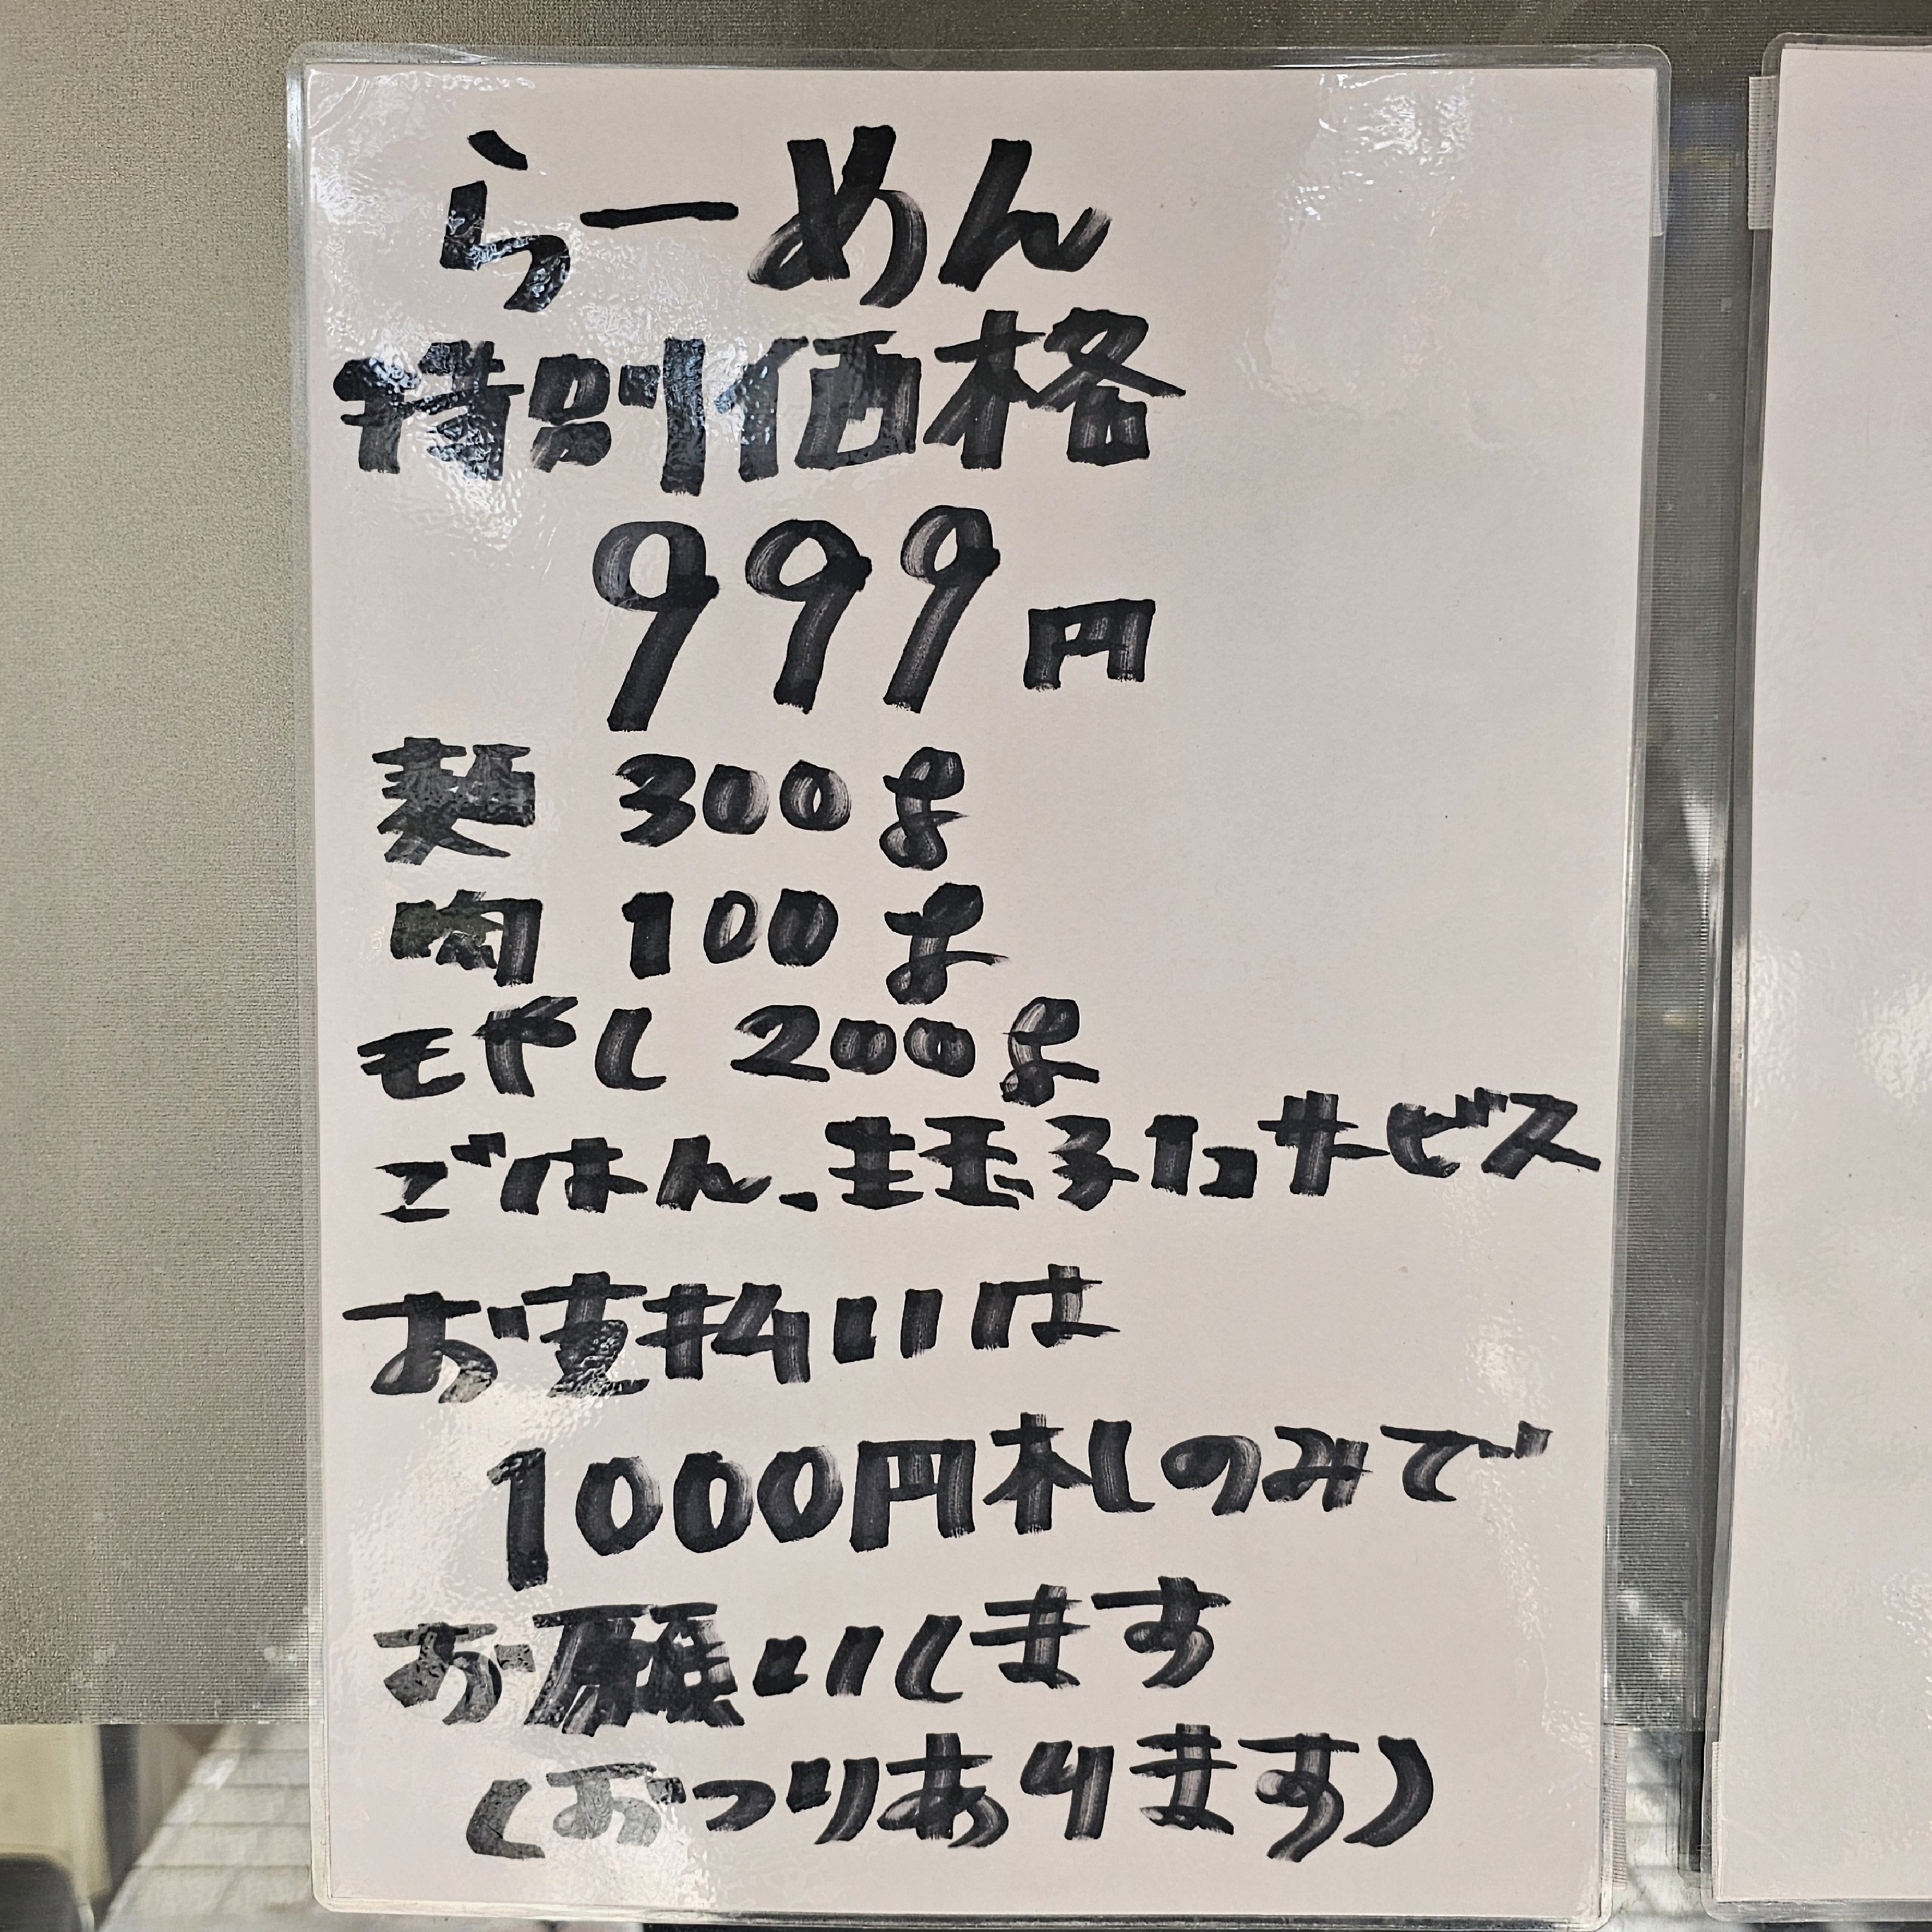 らーめん
特別価格
999円
麺 300g
肉 100g
モやし 200g
ごはん、生玉子1コサービス
お支払いは
1000円札のみで
お願いします
(おつりあります)